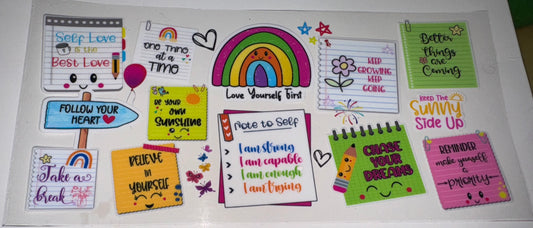 Self Love
is the
Best Love
ONE THING
AT A
TIME
Love Yourself First
KEEP
GROWING
KEEP
GOING
Better
things
are
Coming
FOLLOW YOUR
HEART
BE YOUR
OWN
SUNSHINE
Note to Self
I am strong
I am capable
I am enough
I am trying
KEEP THE
Sunny
SIDE UP
Take a
break
BELIEVE
IN
YOURSELF
CHASE
YOUR
DREAMS
REMINDER
make yourself
a
PRIORITY